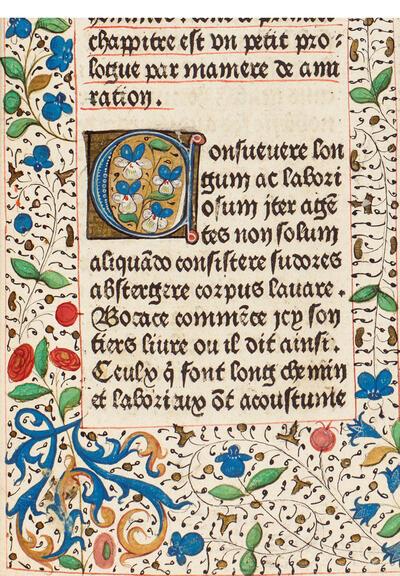 chappitre est vn petit pro-
logue par maniere de ami
ration.
Consueuere lon
gum ac labori
osum jter agē
tes non solum
aliquādo consistere sudores
abstergere corpus lauare.
Bocace commēce jcy son
tiers liure ou il dit ainsi.
Ceulx q̄ font long chemin
et laborieux ōt acoustume